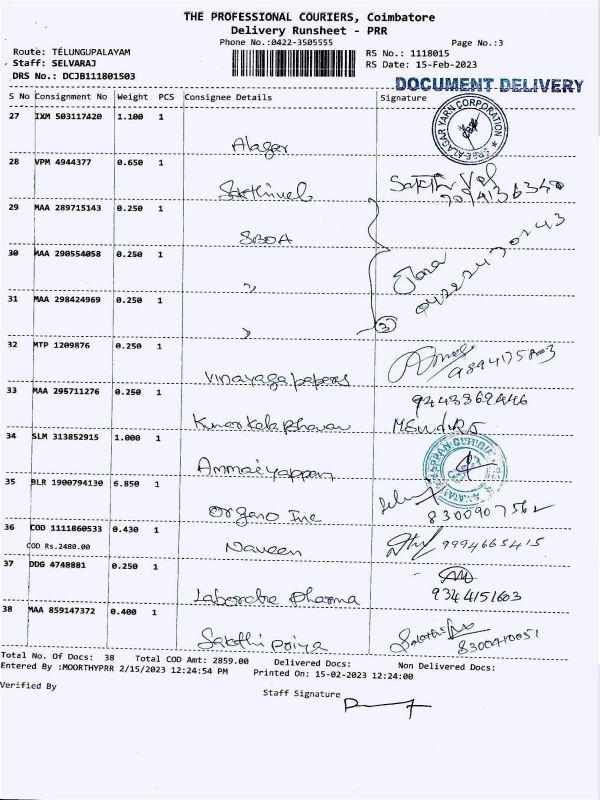 THE PROFESSIONAL COURIERS, Coimbatore
Delivery Runsheet - PRR
Phone No.:0422-3505555
Page No.:3
Route: TELUNGUPALAYAM
RS No.: 1118015
Staff: SELVARAJ
RS Date: 15-Feb-2023
DRS No.: DCJB111801503
DOCUMENT DELIVERY
S No Consignment No Weight PCS Consignee Details Signature
27 IXM 503117420 1.100 1
Alagar
SREE ALAGAR YARN CORPORATION
28 VPM 4944377 0.650 1
Sakthivel
29 MAA 289715143 0.250 1
SBOA
30 MAA 290554058 0.250 1
"
31 MAA 298424969 0.250 1
"
3
32 MTP 1209876 0.250 1
Vinayaga papers
33 MAA 295711276 0.250 1
9443369446
34 SLM 313852915 1.000 1
Ammaiyappan
35 BLR 1900794130 6.850 1
Organo Inc
8300907562
36 COD 1111860533 0.430 1
COD Rs.2480.00
Naveen
9994665415
37 DDG 4748881 0.250 1
Laborate pharma
9344151603
38 MAA 859147372 0.400 1
Sakthi poiya
8300410051
Total No. Of Docs: 38 Total COD Amt: 2859.00 Delivered Docs: Non Delivered Docs:
Entered By :MOORTHYPRR 2/15/2023 12:24:54 PM Printed On: 15-02-2023 12:24:00
Verified By
Staff Signature